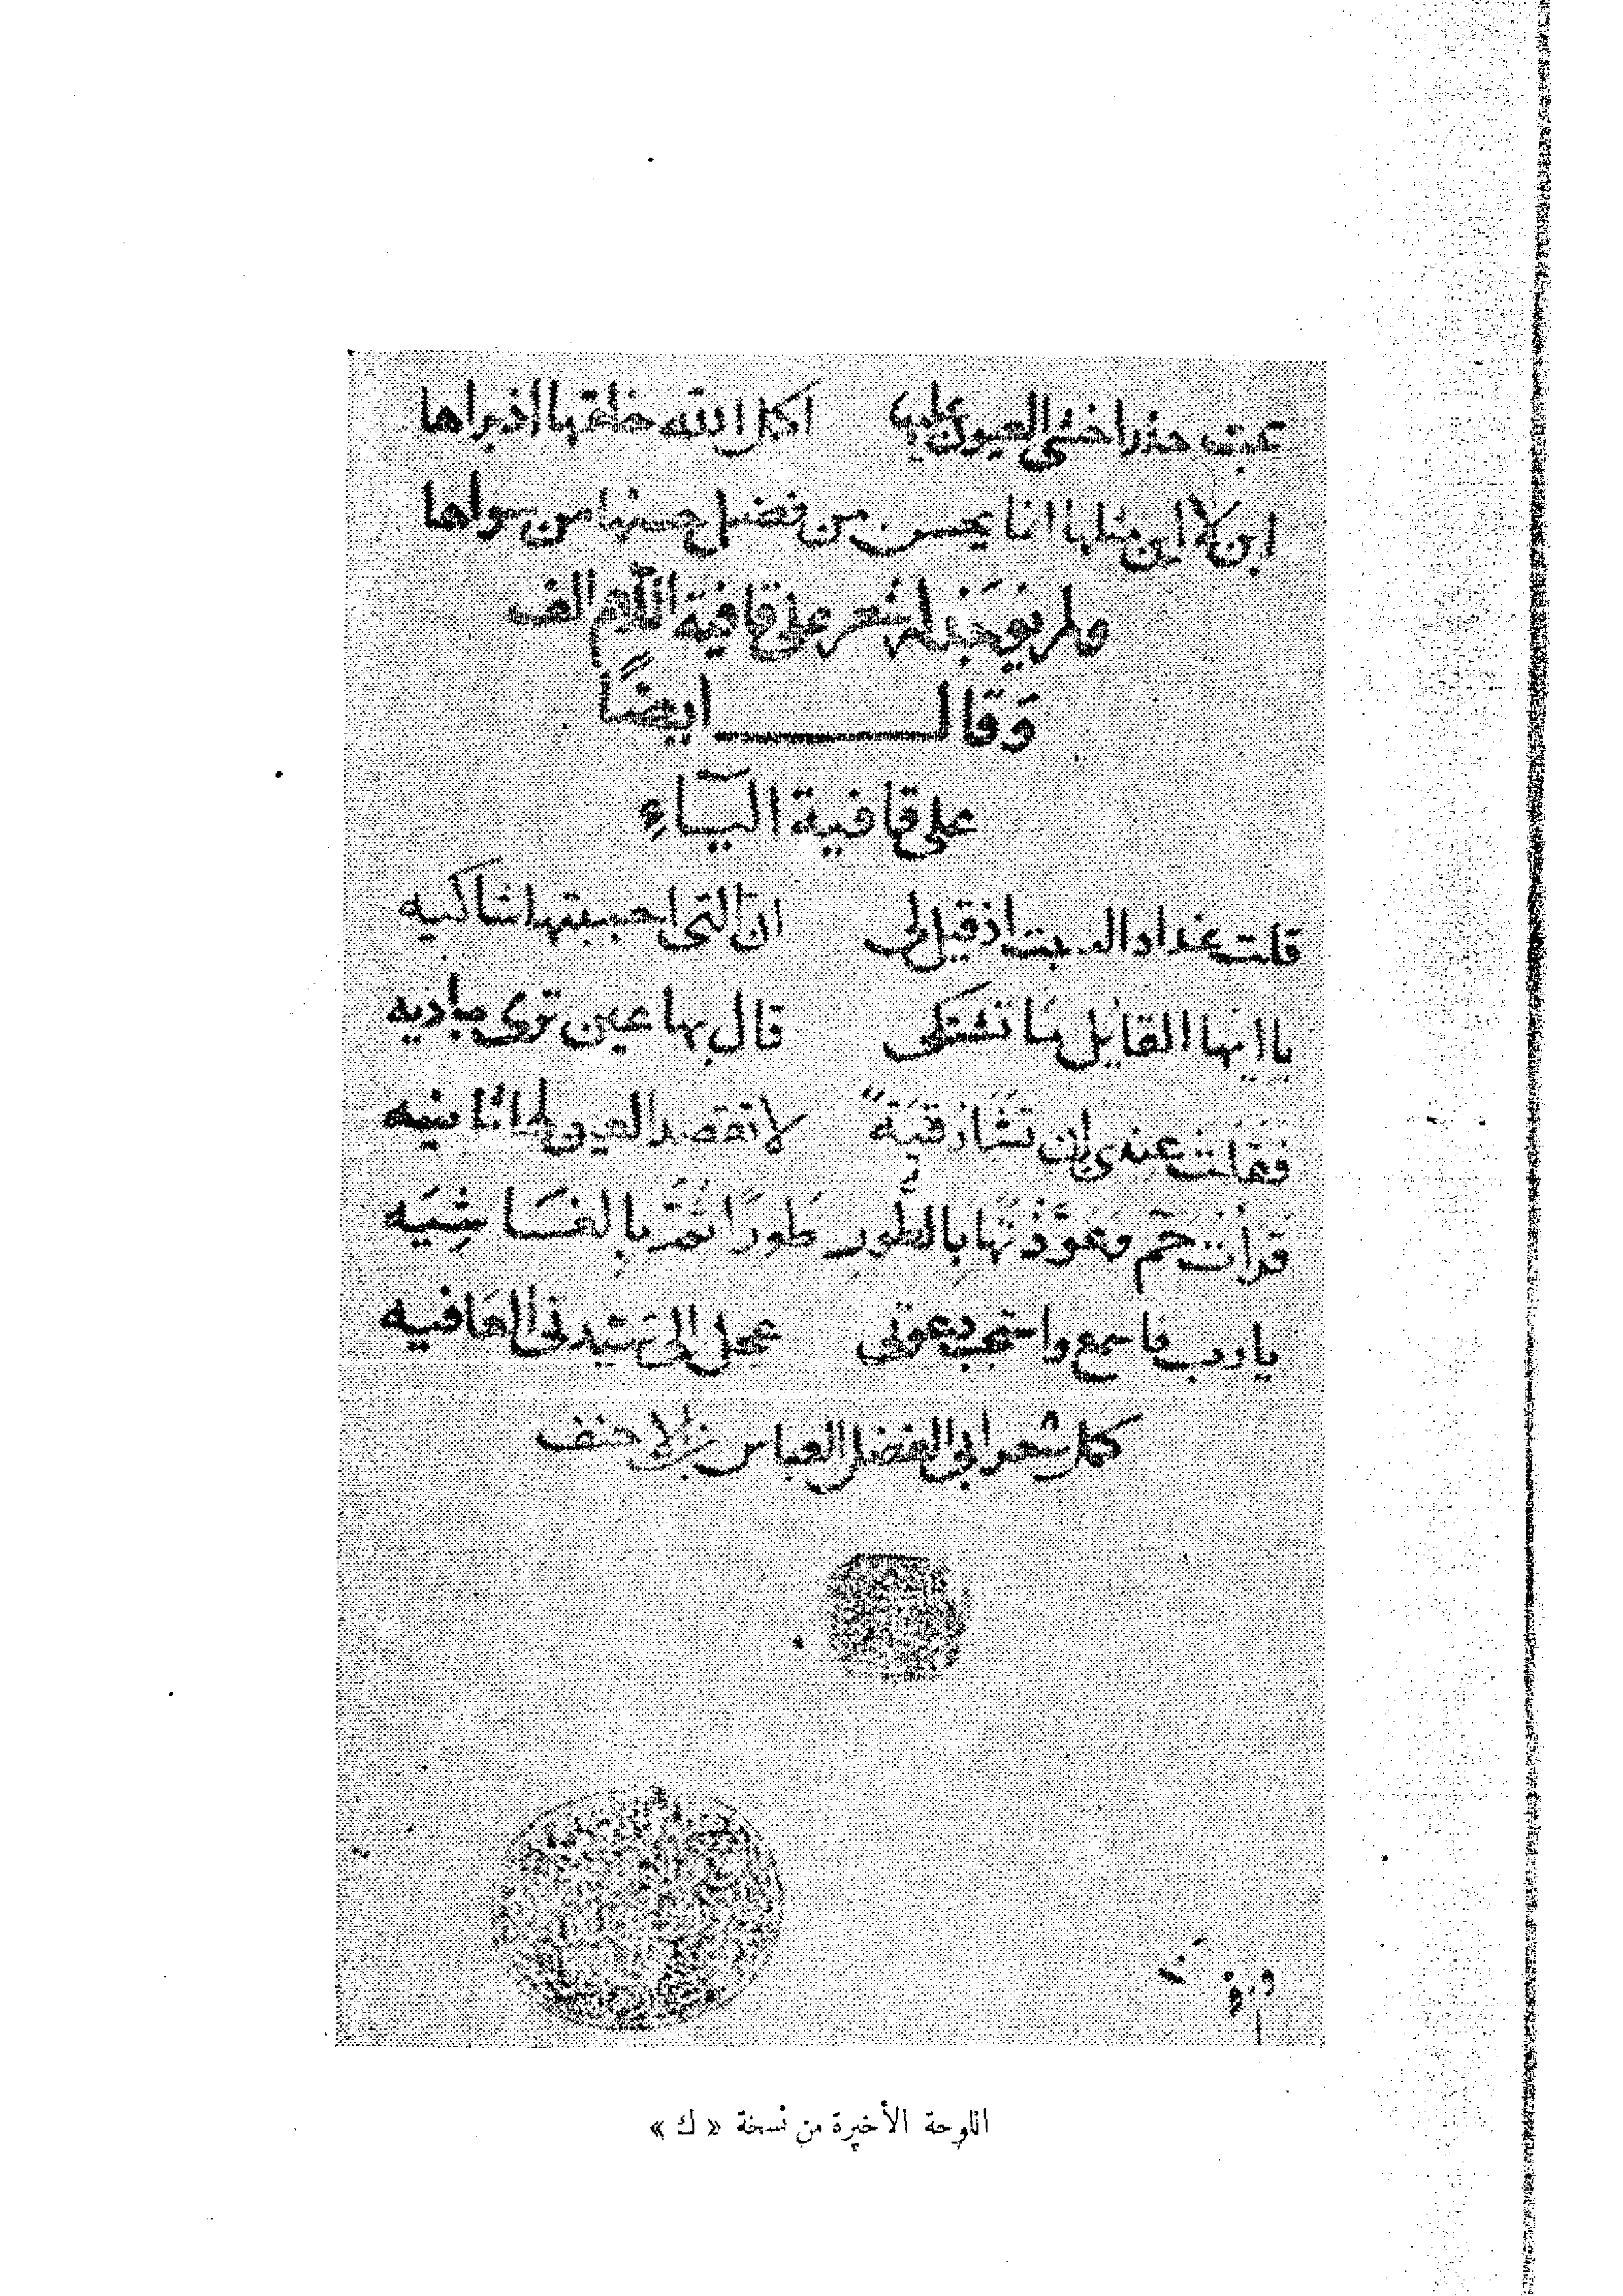 عبت حذرا اخشى العيون عليها اكل الله خلقها اذ براها
اين لا اين مثلها انا يحسن من فضل حسنها من سواها
ولم يوجد له شعر على قافية اللام الف
وَقال ايضًا
على قافية اليَآءِ
قلت غداه السبت اذ قيل لى انّ التى احببتها شاكيه
يا ايها القايل ما تشتكى قال بها عين ترى ماذيه
فقلت عندى ان تشا رقيَة لا تقصد العين لها ثانيه
قرأت حم وعَوَّذتُها بالطُورِ طَورًا ثُمّ بالغَاشِيَه
يا رب فاسمع واستجب دعوتى عجل الى سيدتى العافيه
كمل شعر ابى الفضل العباس بن الاحنف
اللوحة الأخيرة من نسخة « ك »